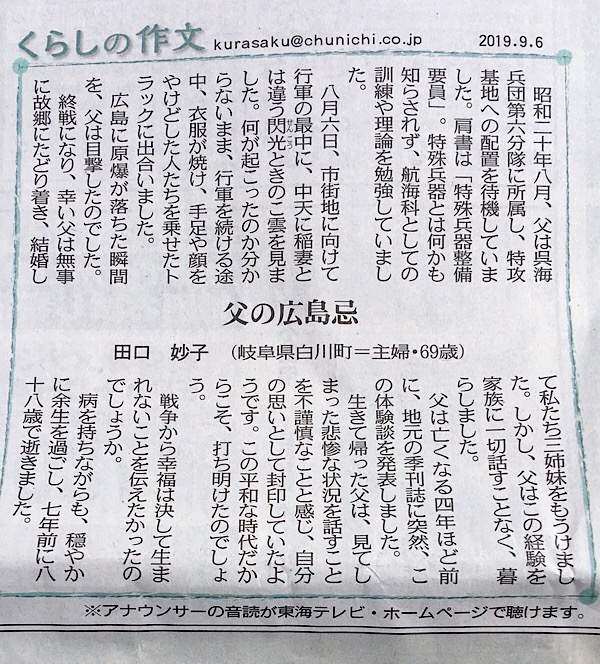 くらしの作文 kurasaku@chunichi.co.jp 2019.9.6
父の広島忌
田口 妙子 (岐阜県白川町=主婦・69歳)
昭和二十年八月、父は呉海
兵団第六分隊に所属し、特攻
基地への配置を待機していま
した。肩書は「特殊兵器整備
要員」。特殊兵器とは何かも
知らされず、航海科としての
訓練や理論を勉強していまし
た。
八月六日、市街地に向けて
行軍の最中に、中天に稲妻と
は違う閃光ときのこ雲を見ま
した。何が起こったのか分か
らないまま、行軍を続ける途
中、衣服が焼け、手足や顔を
やけどした人たちを乗せたト
ラックに出合いました。
広島に原爆が落ちた瞬間
を、父は目撃したのでした。
終戦になり、幸い父は無事
に故郷にたどり着き、結婚し
て私たち三姉妹をもうけまし
た。しかし、父はこの経験を
家族に一切話すことなく、暮
らしました。
父は亡くなる四年ほど前
に、地元の季刊誌に突然、こ
の体験談を発表しました。
生きて帰った父は、見てし
まった悲惨な状況を話すこと
を不謹慎なことと感じ、自分
の思いとして封印していたよ
うです。この平和な時代だか
らこそ、打ち明けたのでしょ
う。
戦争から幸福は決して生ま
れないことを伝えたかったの
でしょうか。
病を持ちながらも、穏やか
に余生を過ごし、七年前に八
十八歳で逝きました。
※アナウンサーの音読が東海テレビ・ホームページで聴けます。